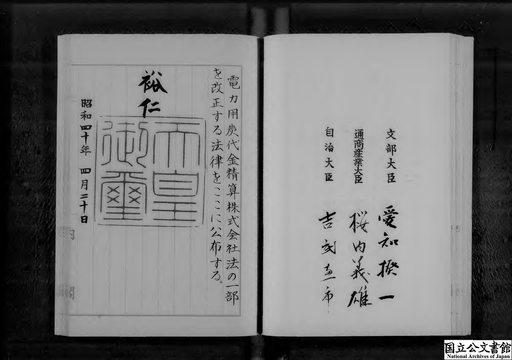 文部大臣 愛知揆一
通商産業大臣 桜内義雄
自治大臣 吉武恵市
電力用炭代金精算株式会社法の一部
を改正する法律をここに公布する。
裕仁
天皇
御璽
昭和四十年 四月二十日
国立公文書館
National Archives of Japan